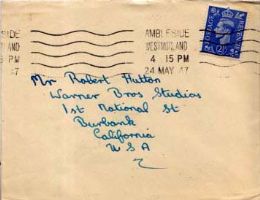 SIDE
LAND
PM
47
AMBLESIDE
WESTMORLAND
4 15 PM
24 MAY 47
POSTAGE
REVENUE
2½D
Mr Robert Hutton
Warner Bros Studios
1st National St
Burbank
California
U S A